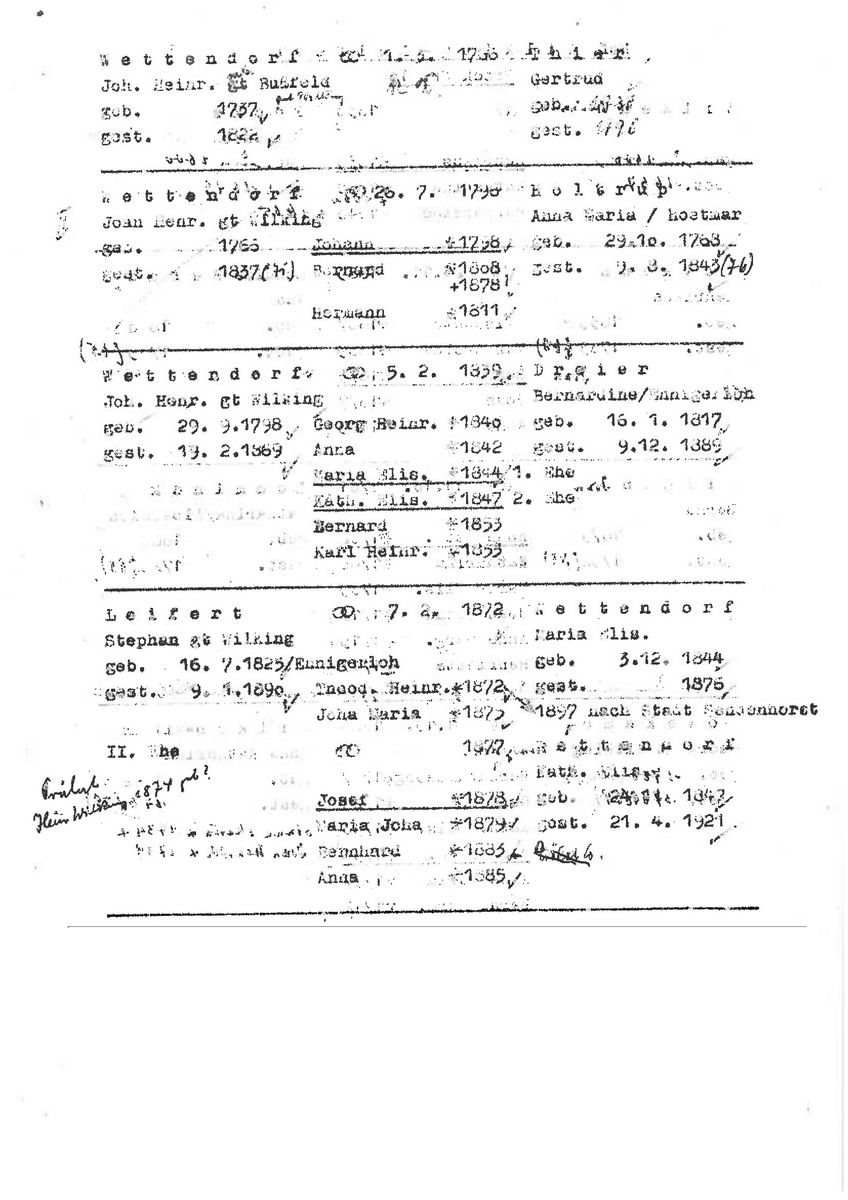 W e t t e n d o r f ⚭ 1. 1766 T h i e r
Joh. Heinr. gt Bußfeld Gertrud
geb. 1737 geb.
gest. 1822 gest. 1796
W e t t e n d o r f ⚭ 26. 7. 1796 H o l t r u p
Joan Henr. gt Wilking Anna Maria / Hoetmar
geb. 1766 Johann *1798 geb. 29.10. 1768
gest. 1837 Bernard *1808 gest. 9. 8. 1843 (76)
+1878
Hermann *1811
W e t t e n d o r f ⚭ 5. 2. 1839 D r e i e r
Joh. Henr. gt Wilking Bernardine/Ennigerloh
geb. 29. 9.1798 Georg Heinr. *1840 geb. 16. 1. 1817
gest. 19. 2.1869 Anna *1842 gest. 9.12. 1889
Maria Elis. *1844 1. Ehe
Kath. Elis. *1847 2. Ehe
Bernard *1853
Karl Heinr. *1855
L e i f e r t ⚭ 7. 2. 1872 W e t t e n d o r f
Stephan gt Wilking Maria Elis.
geb. 16. 7.1825/Ennigerloh geb. 3.12. 1844
gest. 9. 1.1890 Theod. Heinr. *1872 gest. 1876
Joha Maria *1875 1897 nach Stadt Sendenhorst
II. Ehe ⚭ 1877 W e t t e n d o r f
Kath. Elis.
1874 geb?
Josef *1878 geb. 24.11. 1847
Maria Joha *1879 gest. 21. 4. 1921
Bernhard *1883
Anna *1885